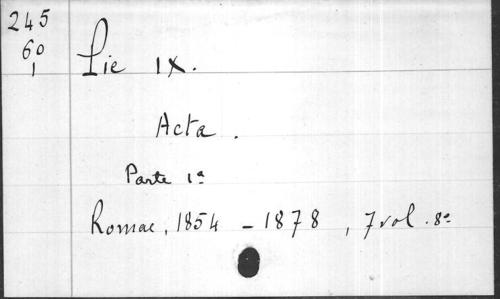 245
60
1
Pie IX.
Acta.
Parte 1ª
Romae, 1854 - 1878, 7 vol. 8º